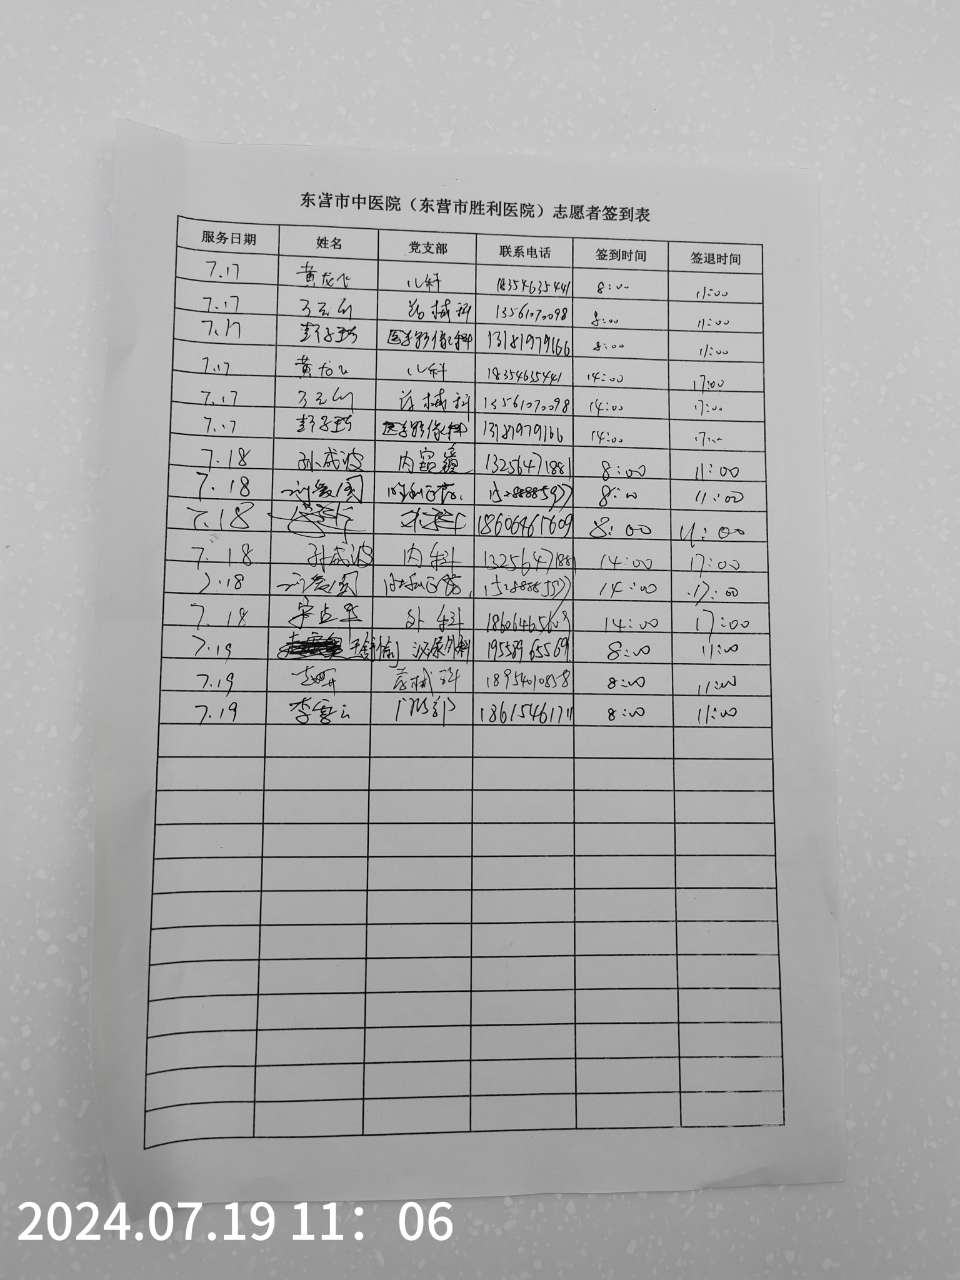 东营市中医院（东营市胜利医院）志愿者签到表
服务日期 姓名 党支部 联系电话 签到时间 签退时间
7.17 黄龙飞 儿科 18354635441 8:00 11:00
7.17 药械科 13561070098 8:00 11:00
7.17 医学影像科 13181979166 8:00 11:00
7.17 黄龙飞 儿科 18354635441 14:00 17:00
7.17 药械科 13561070098 14:00 17:00
7.17 医学影像科 13181979166 14:00 17:00
7.18 孙成波 内 13256471881 8:00 11:00
7.18 8:00 11:00
7.18 18606467609 8:00 11:00
7.18 孙成波 内科 13256471881 14:00 17:00
7.18 14:00 17:00
7.18 外科 14:00 17:00
7.19 泌尿外科 19558965569 8:00 11:00
7.19 药械科 18954010858 8:00 11:00
7.19 李雪云 门诊部 18615461711 8:00 11:00
2024.07.19 11：06